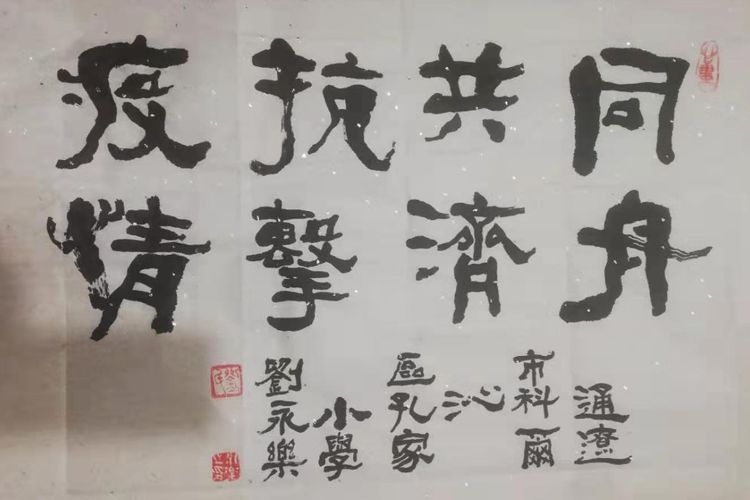 同舟
共濟
抗擊
疫情
通遼
市科爾
沁
區孔家
小學
劉永樂